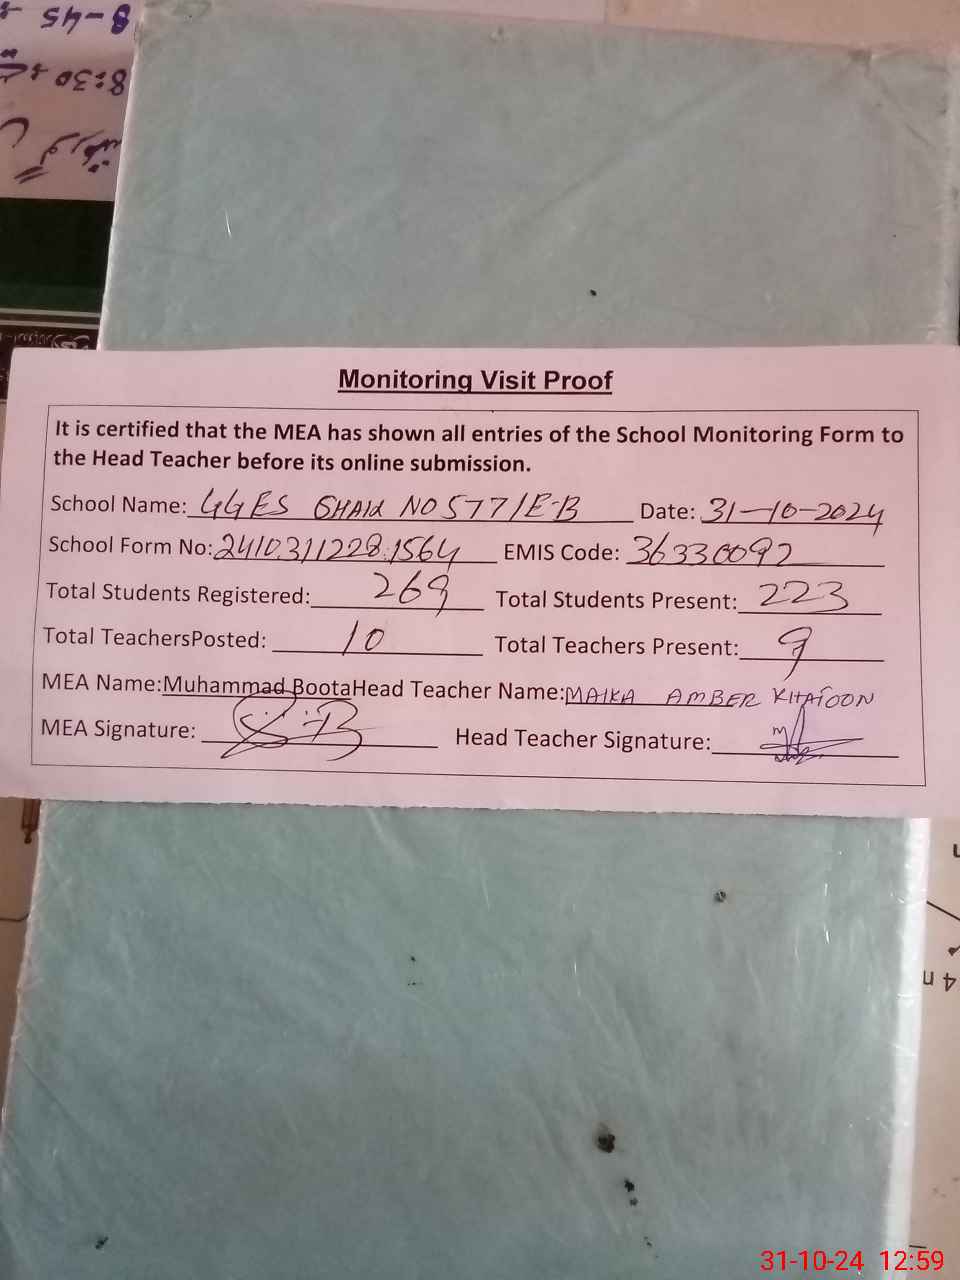 8-45
8:30
Monitoring Visit Proof
It is certified that the MEA has shown all entries of the School Monitoring Form to
the Head Teacher before its online submission.
School Name: GGES CHAK NO 577/E-B Date: 31-10-2024
School Form No: 2410311228.1564 EMIS Code: 36330092
Total Students Registered: 269 Total Students Present: 223
Total TeachersPosted: 10 Total Teachers Present: 9
MEA Name:Muhammad BootaHead Teacher Name: MAIKA AMBER KHATOON
MEA Signature: Head Teacher Signature:
4 n
31-10-24 12:59